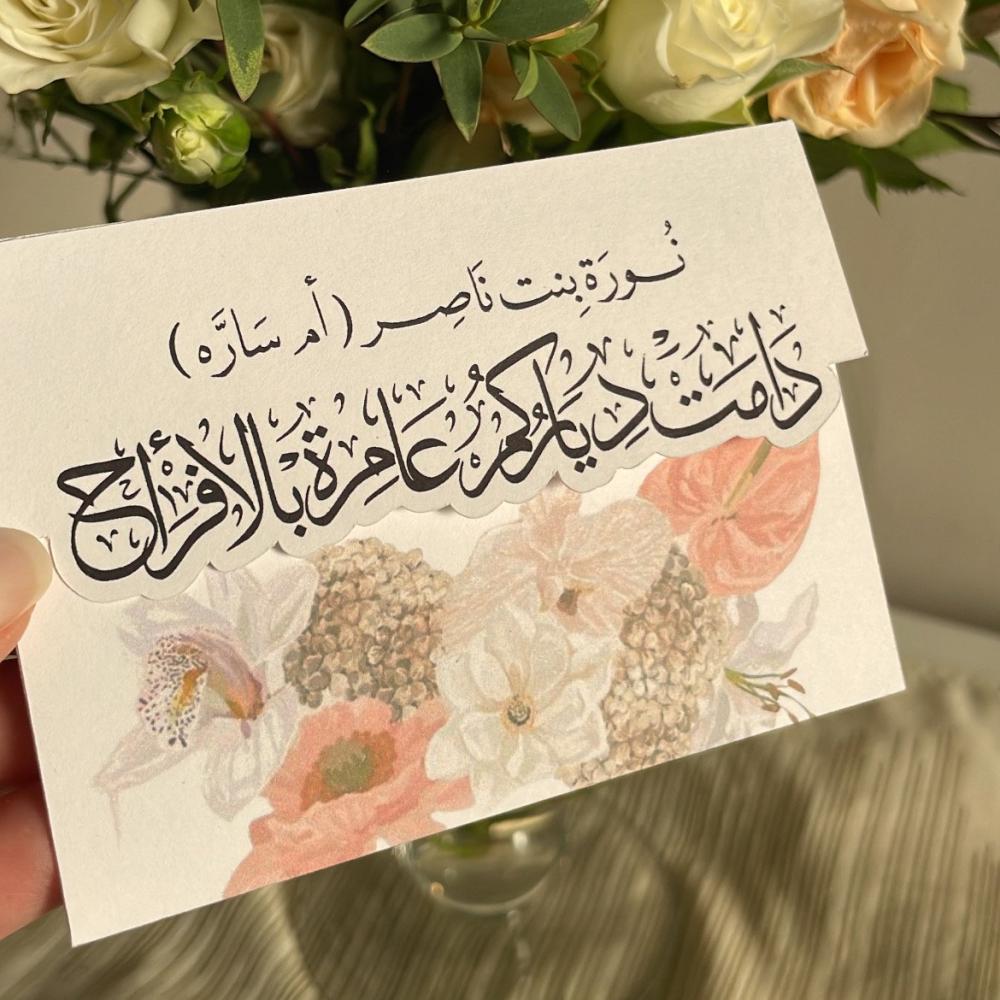 نُورَة بِنت نَاصِر (أم سَارَّه)
دَامَتْ دِيَارُكُمْ عَامِرَة بَالأفْرَاح